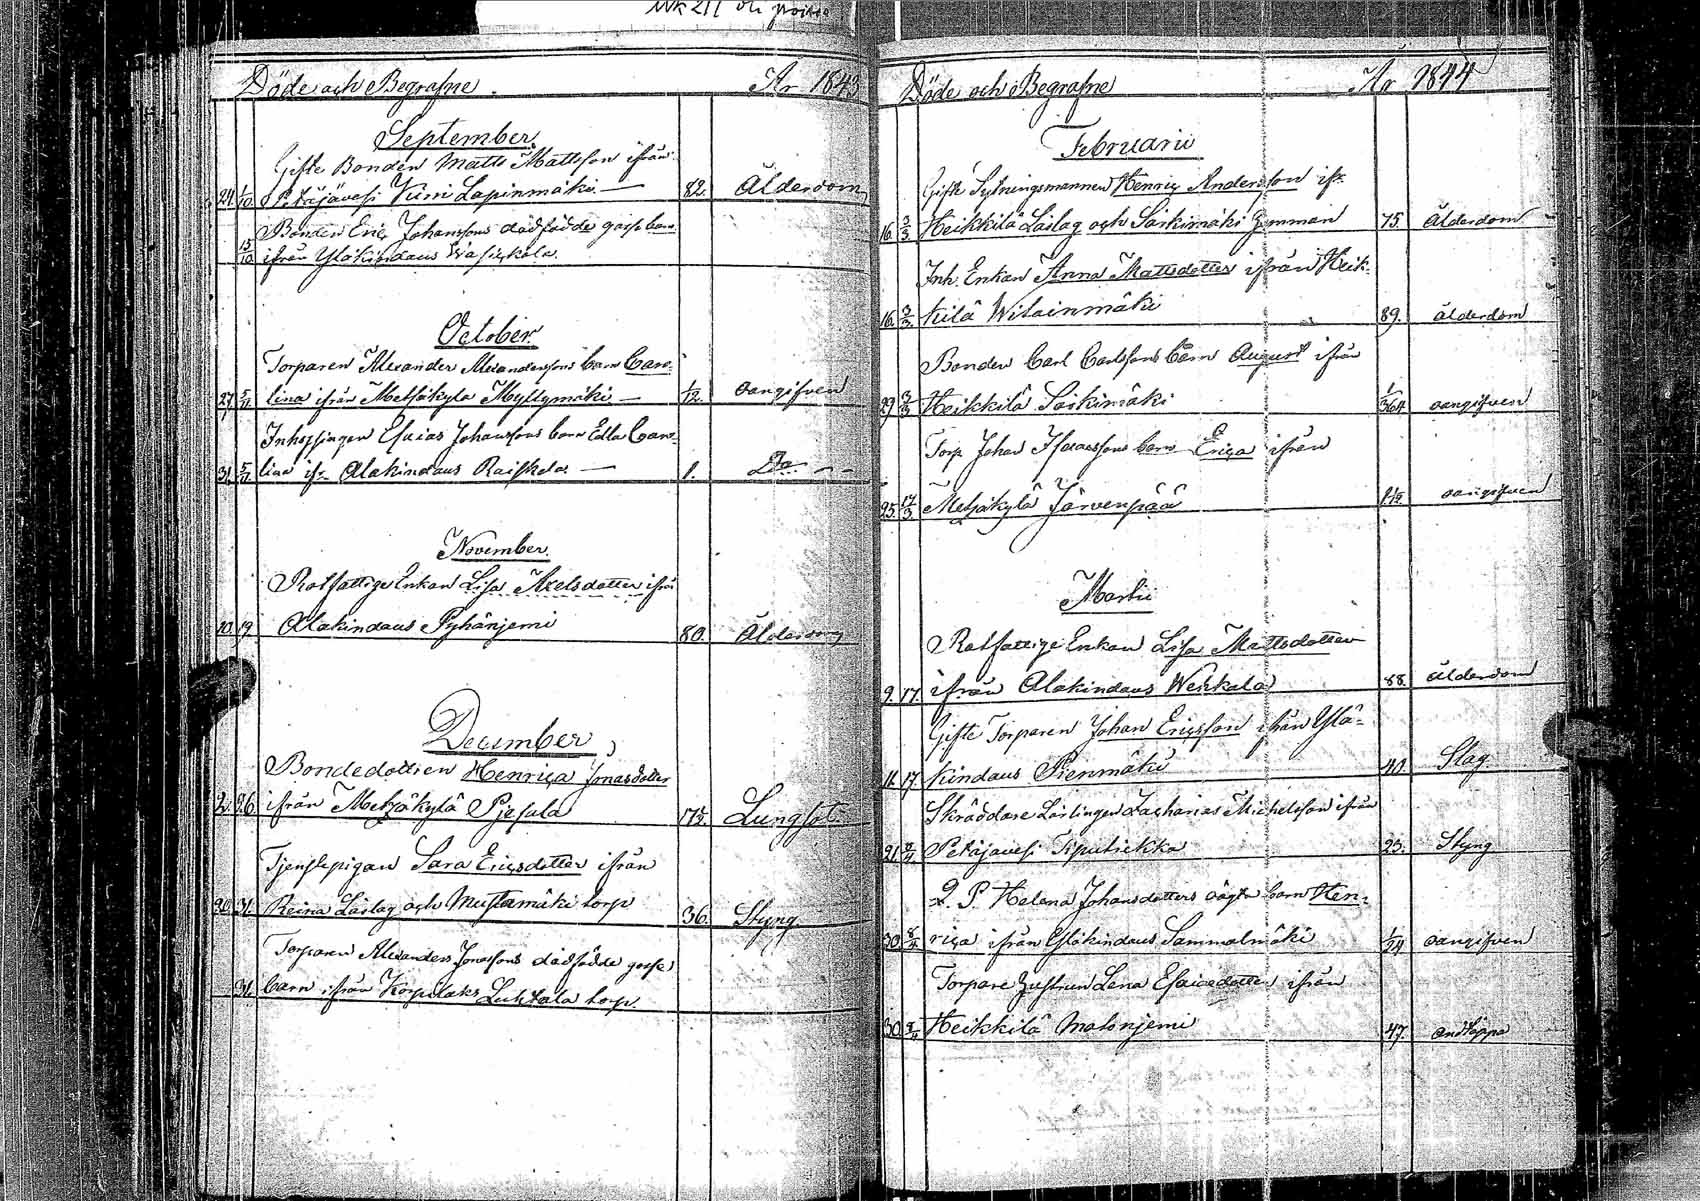 Döde och Begrafne. År 1843
September.
Gifte Bonden Matts Mattsson ifrån
24. 1/10. Petäjävesi Kimi Lapinmäki. — 82. Ålderdom
Bonden Eric Johanssons dödfödde gosse barn
15/10 ifrån Yläkindaus
October.
Torparen Alexander Alexanderssons barn Caro-
27. 5/11 lina ifrån Metsäkylä Myllymäki — 1/12. oangifven
Inhysingen Esaias Johanssons barn Edla Caro-
31. 5/11. lina ifr. Alakindaus Raiskola — 1. Do — —
November.
Rotfattige Enkan Lisa Axelsdotter ifrån
10. 19. Alakindaus Pyhänjemi 80. Ålderdom
December
Bondedottren Henrica Jonasdotter
2. 26. ifrån Metsäkylä Pjesala 17 1/2. Lungsot
Tjenstepigan Sara Ericsdotter ifrån
20. 31. Reina Läilag och Mustamäki torp 36. Styng
Torparen Alexanders Jonassons dödfödde gosse
31. barn ifrån Korpilaks Luhtala torp.
Döde och Begrafne År 1844
Februarii
Gifte Sytningsmannen Henric Andersson ifr.
16. 3/3 Heikkilä Läilag och Saikimäki hemman 75. ålderdom
Inh. Enkan Anna Mattsdotter ifrån Heik-
16. 3/3. kilä Wilainmäki 89. ålderdom
Bonden Carl Carlssons barn August ifrån
29 3/3 Heikkilä Saikimäki 1/364 oangifven
Torp. Johan Isaacssons barn Erica ifrån
25. 17/3 Metsäkylä Järvenpää oangifven
Martii
Rotfattige Enkan Lisa Mattsdotter
9. 17. ifrån Alakindaus Wehkala 88. ålderdom
Gifte Torparen Johan Ericsson ifrån Ylä-
11. 17. kindaus Pienmäki 40. Slag.
Skräddare Lärlingen Zacharias Michelsson ifrån
21. 8/4 Petäjavesi Tiputiekka 23. Styng
Q. P. Helena Johansdotters oägta barn Hen-
30. 8/4 rica ifrån Yläkindaus Sammalmäki 1/24 oangifven
Torpare hustrun Lena Esaiedotter ifrån
30. 8/4 Heikkilä Malonjemi 47. andtäppa